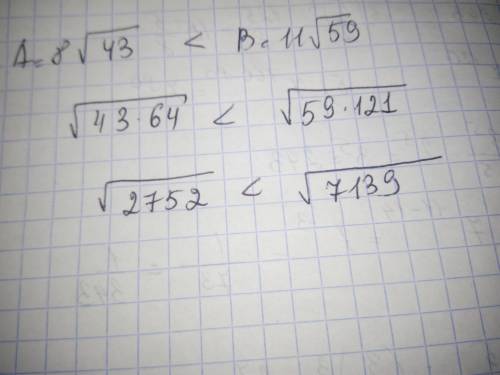 A=8√43 < B=11√59
√43·64 < √59·121
√2752 < √7139